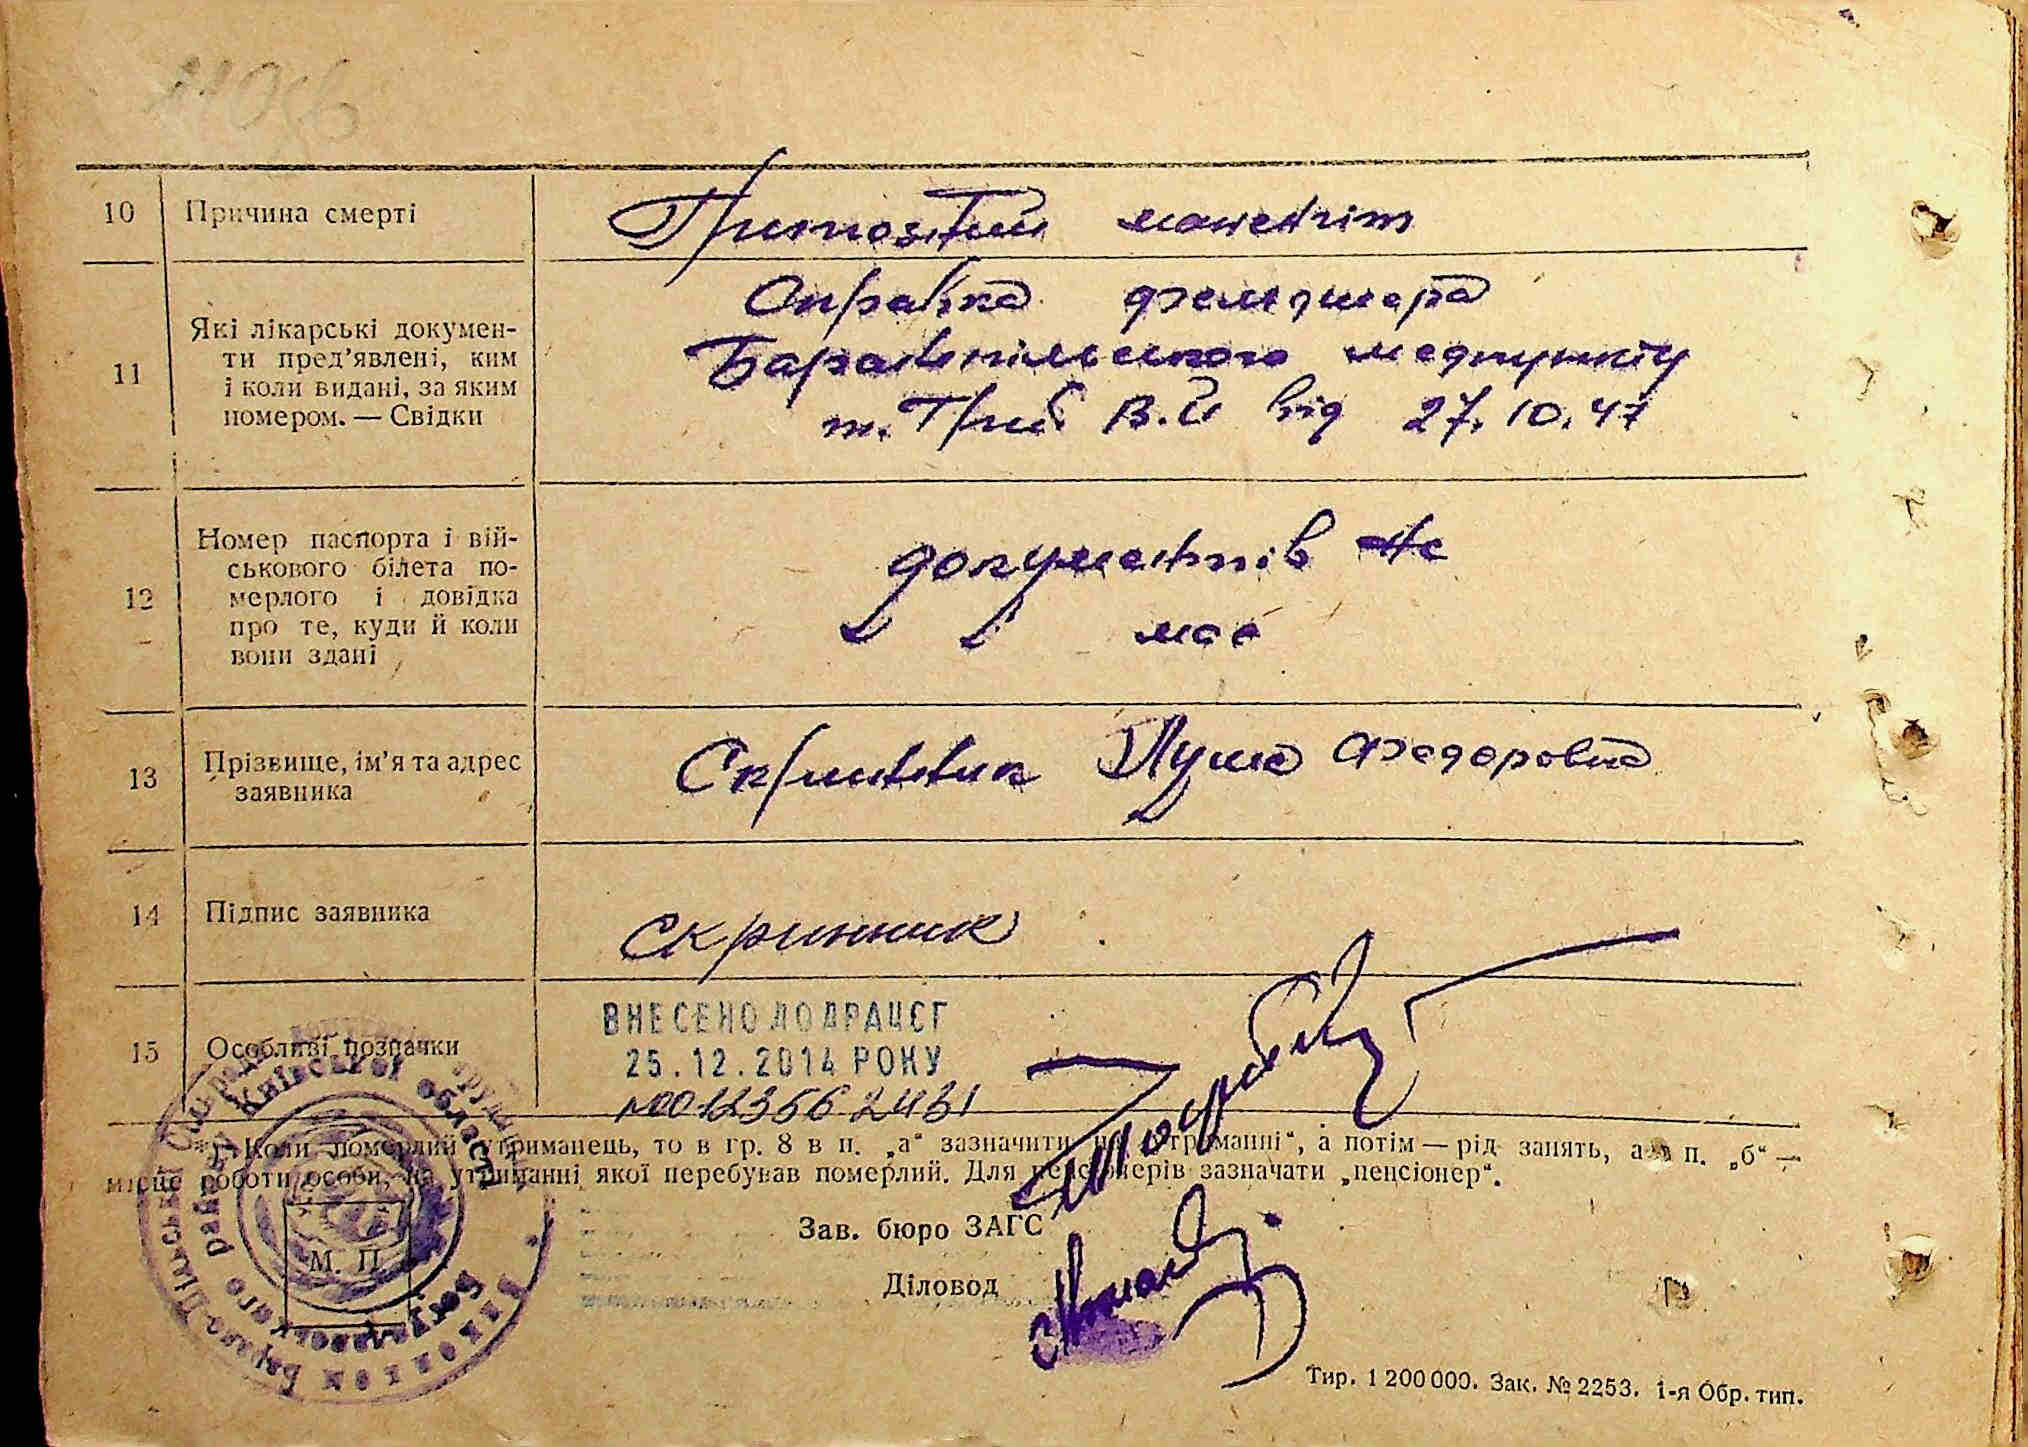 10 Причина смерті
менентит
11 Які лікарські документи пред’явлені, ким і коли видані, за яким номером. — Свідки
Справка фельдшера
Баранпільського медпункту
т. Гриб В.И від 27.10.47
12 Номер паспорта і військового білета померлого і довідка про те, куди й коли вони здані
документів не
має
13 Прізвище, ім’я та адрес заявника
Скринник Луша Федоровна
14 Підпис заявника
Скринник
15 Особливі позначки
ВНЕСЕНО ДО ДРАЦСГ
25.12.2014 РОКУ
№00123562431
*) Коли померлий утриманець, то в гр. 8 в п. „а“ зазначити „на утриманні“, а потім — рід занять, а в п. „б“ —
місце роботи особи, на утриманні якої перебував померлий. Для пенсіонерів зазначати „пенсіонер“.
Зав. бюро ЗАГС
Діловод
М. П.
Київської області
Тир. 1 200 000. Зак. № 2253. 1-я Обр. тип.